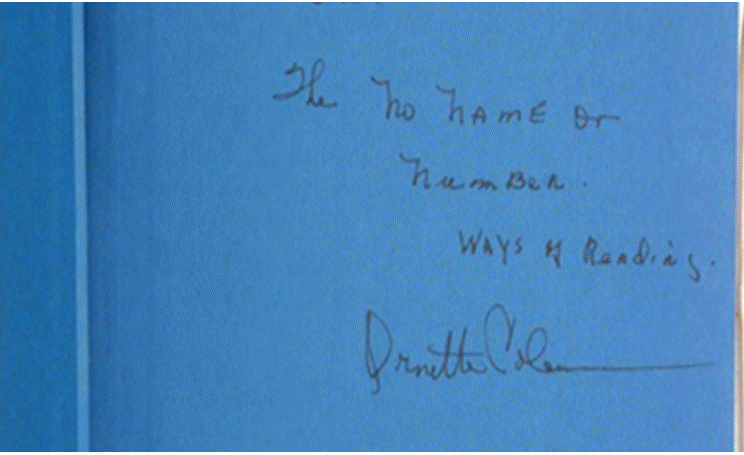 The No NAME or
Number.
WAYS of Reading.
Ornette Coleman